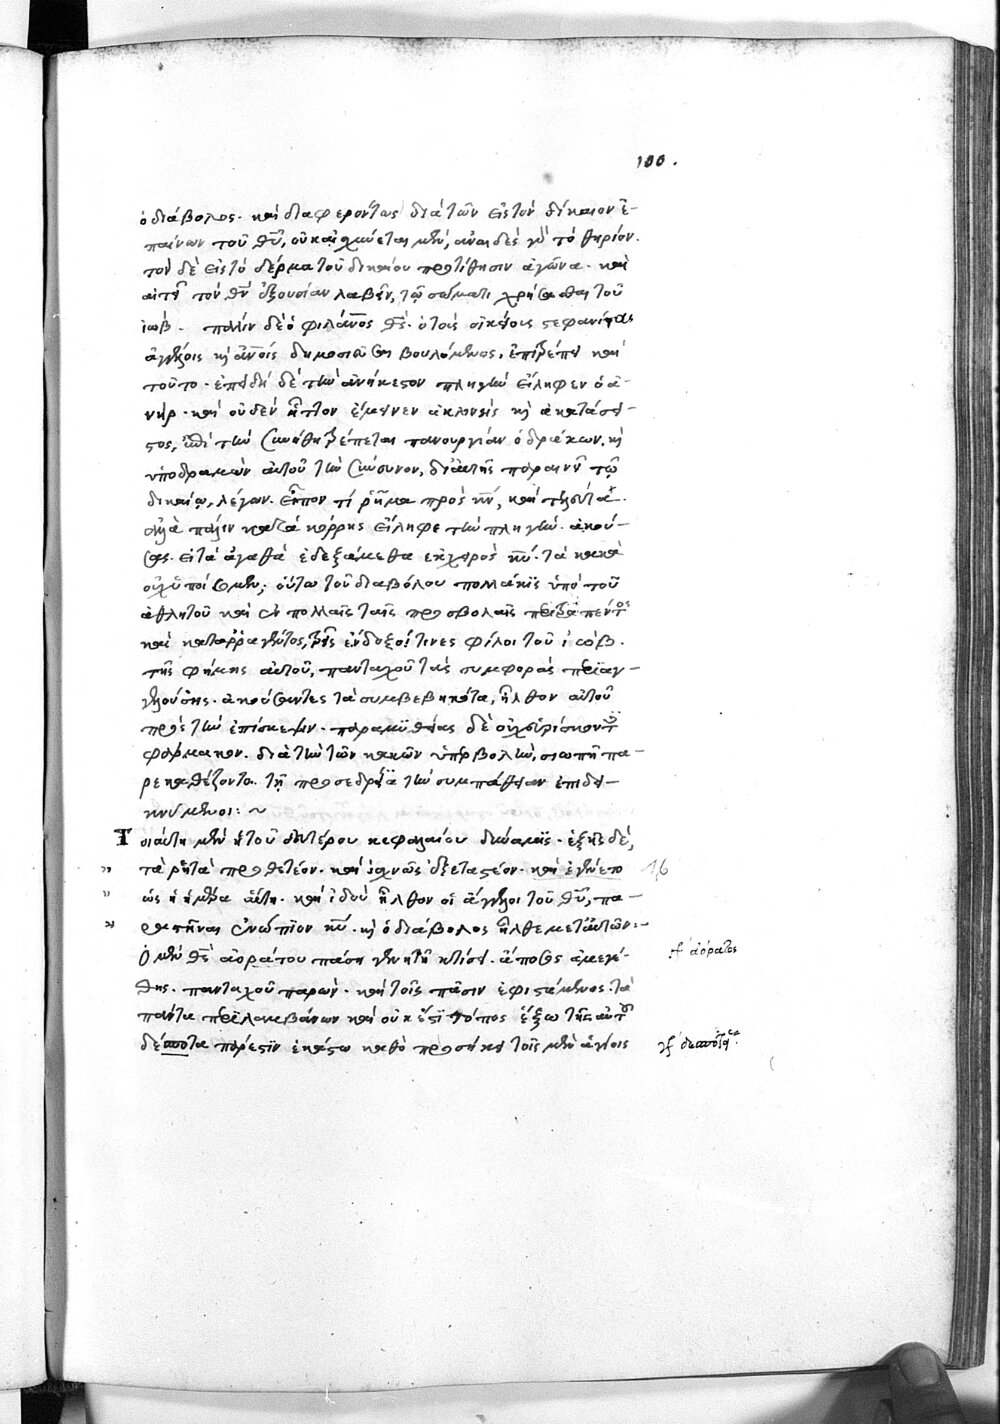 100.
ὁ διάβολος. καὶ διαφερόντως διὰ τῶν εἰς τὸν δίκαιον ἐ-
παίνων τοῦ θῦ, οὐκ αἰσχύνεται μὲν, ἀναιδὲς γὰρ τὸ θηρίον.
τὸν δὲ εἰς τὸ δέρμα τοῦ δικαίου προτίθησιν ἀγῶνα. καὶ
αἰτεῖ τὸν θν ἐξουσίαν λαβεῖν, τῷ σώματι χρήσασθαι τοῦ
ἰώβ. πάλιν δὲ ὁ φιλάνος θς. ὁ τοὺς οἰκείους στεφανίτας
ἀγγέλοις κὶ ἀνοις δημοσιεῦσαι βουλόμενος, ἐπιτρέπει καὶ
τοῦτο. ἐπειδὴ δὲ τὴν ἀνήκεστον πληγὴν εἴληφεν ὁ ἀ-
νὴρ. καὶ οὐδὲν ἧττον ἔμεινεν ἀκλινὴς κὶ ἀκατάσει-
στος, ἐπὶ τὴν συνήθη τρέπεται πανουργίαν ὁ δράκων. κὶ
ὑποδραμὼν αὐτοῦ τὴν σύνευνον, δι' αὐτῆς παραινεῖ τῷ
δικαίῳ, λέγων. εἶπον τί ῥῆμα πρὸς κν, καὶ τελεύτα.
ἀλλὰ πάλιν κατὰ κόρρης εἴληφε τὴν πληγὴν. ἀκού-
σας. εἰ τὰ ἀγαθὰ ἐδεξάμεθα ἐκ χειρὸς κυ. τὰ κακὰ
οὐχ ὑποίσομεν; οὕτω τοῦ διαβόλου πολλάκις ὑπὸ τοῦ
ἀθλητοῦ καὶ ἐν πολλαῖς ταῖς προσβολαῖς
καὶ καταρραγέντος, τρεῖς ἔνδοξοί τινες φίλοι τοῦ ἰώβ.
τῆς φήμης αὐτοῦ, πανταχοῦ τὰς συμφορὰς περιαγ-
γελούσης. ἀκούσαντες τὰ συμβεβηκότα, ἦλθον αὐτοῦ
πρὸς τὴν ἐπίσκεψιν. παραμυθίας δὲ οὐχ εὑρίσκοντ
φάρμακον. διὰ τὴν τῶν κακῶν ὑπερβολὴν, σιωπῇ πα-
ρεκαθέζοντο. τῇ προσεδρείᾳ τὴν συμπάθειαν ἐπιδει-
κνύμενοι: ~
Τοιαύτη μὲν ἡ τοῦ δευτέρου κεφαλαίου δύναμις. ἑξῆς δὲ,
τὰ ῥητὰ προθετέον. καὶ ἰσχνῶς ἐξεταστέον. καὶ ἐγένετο 1,6
ὡς ἡ ἡμέρα αὕτη. καὶ ἰδοὺ ἦλθον οἱ ἄγγελοι τοῦ θῦ, πα-
ραστῆναι ἐνώπιον κυ. κὶ ὁ διάβολος ἦλθε μετ' αὐτῶν:-
Ὁ μὲν θς ἀοράτου πάσῃ γεννητῇ κτίσει. ἄποσος ἀμεγέ- γρ ἀόρατος
θης. πανταχοῦ παρὼν. καὶ τοῖς πᾶσιν ἐφιστάμενος. τὰ
πάντα περιλαμβάνων καὶ οὐκ ἔστι τόπος ἔξω τῆς αὐτοῦ
δέσποτα πάρεστιν ἑκάστῳ καθὸ προσήκει τοῖς μὲν ἁγίοις